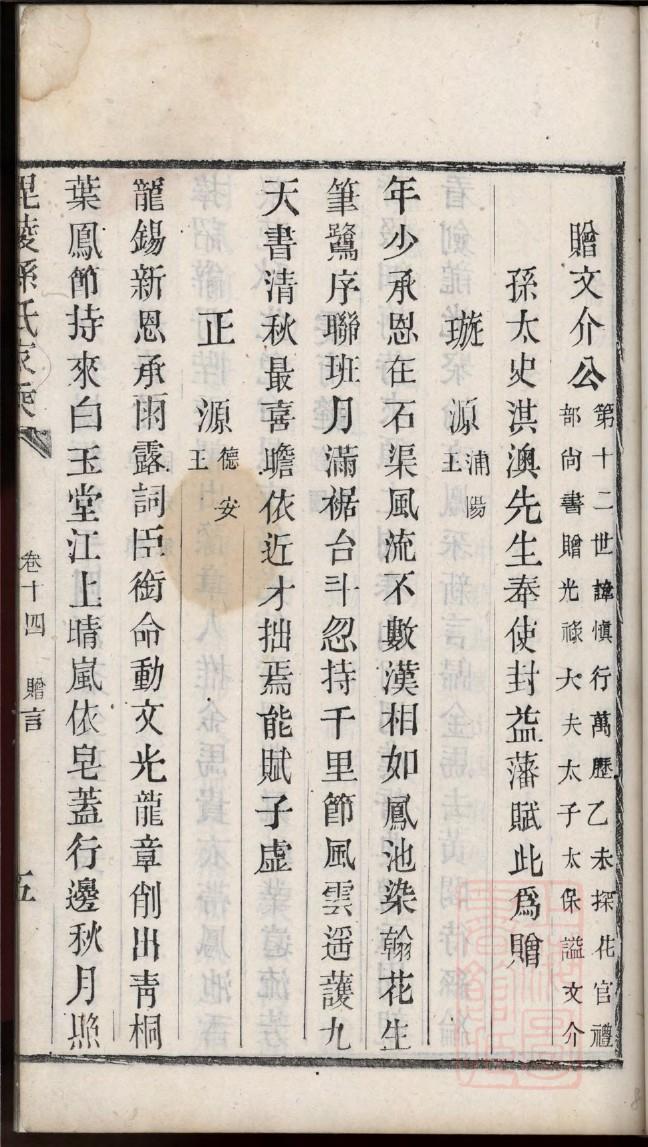 贈文介公第十二世諱慎行萬歷乙未探花官禮部尚書贈光祿大夫太子太保謚文介
孫太史淇澳先生奉使封益藩賦此爲贈
璇源浦陽王
年少承恩在石渠風流不數漢相如鳳池染翰花生
筆鷺序聯班月滿裾台斗忽持千里節風雲遥護九
天書清秋最喜瞻依近才拙焉能賦子虛
正源德安王
龍錫新恩承雨露詞臣銜命動文光龍章削出青桐
葉鳳節持來白玉堂江上晴嵐依皂蓋行邊秋月照
毘陵孫氏家乘 卷十四 贈言 五